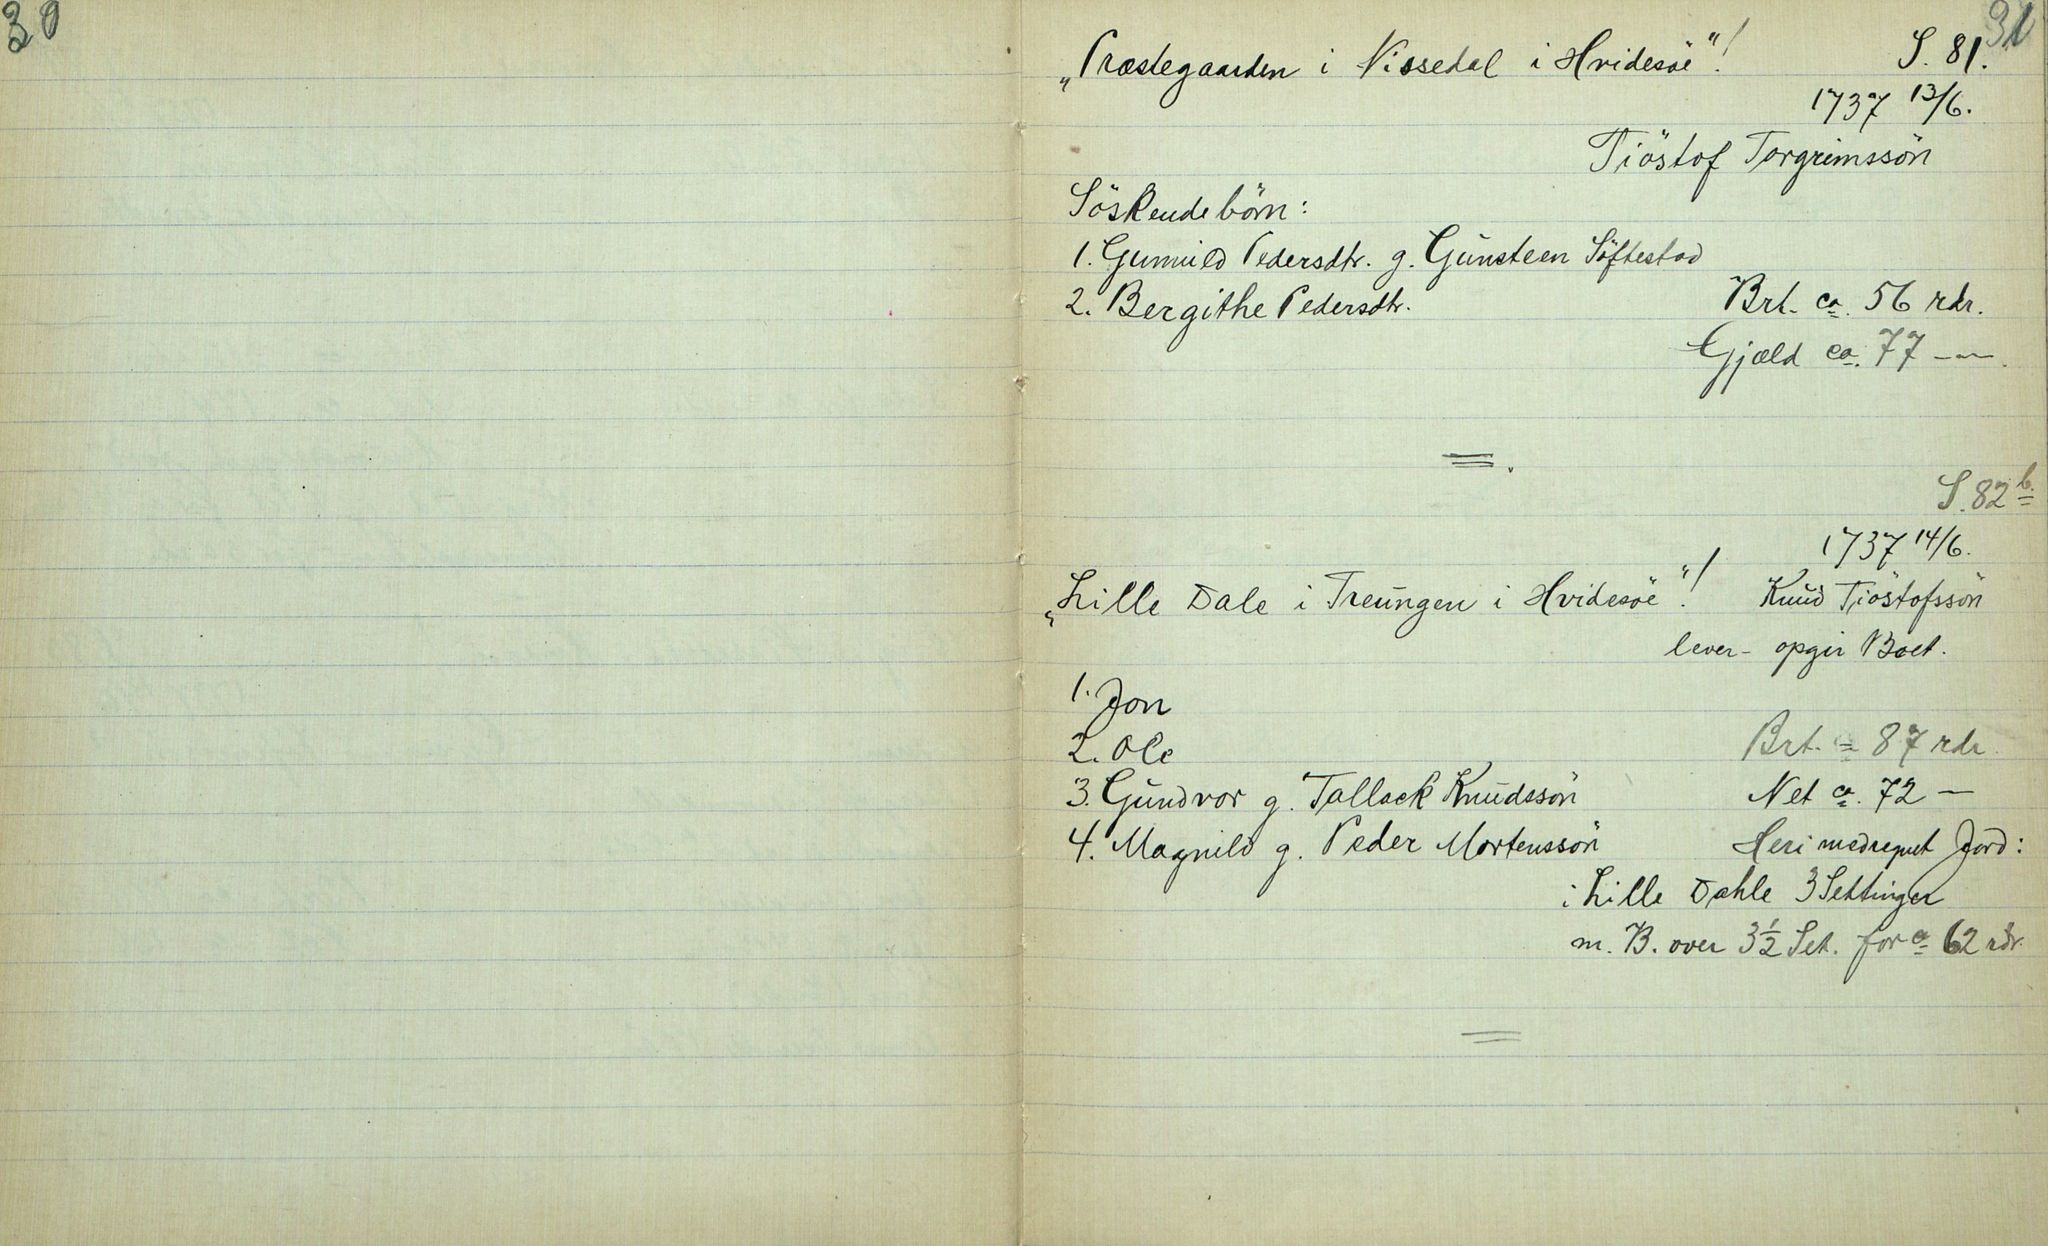 30
31
„Præstegaarden i Nissedal i Hvidesöe"! S. 81.
1737 13/6.
Tiöstof Torgrimssön
Söskendebörn:
1. Gunnild Pedersdtr. g. Gunsteen Söftestad
2. Bergithe Pedersdtr. Brt. ca. 56 rdr.
Gjæld ca. 77 —"—.
S. 82 b.
1737 14/6.
„Lille Dale i Treungen i Hvidesöe"! Knud Tiöstofssön
lever - opgir Boet.
1. Jon
2. Ole Brt. ca 87 rdr.
3. Gundvor g. Tallack Knudssön Net ca. 72 —
4. Magnild g. Peder Mortenssön Heri medregnet Jord:
i Lille Dahle 3 Settinger
m. B. over 3½ Set. for ca 62 rdr.